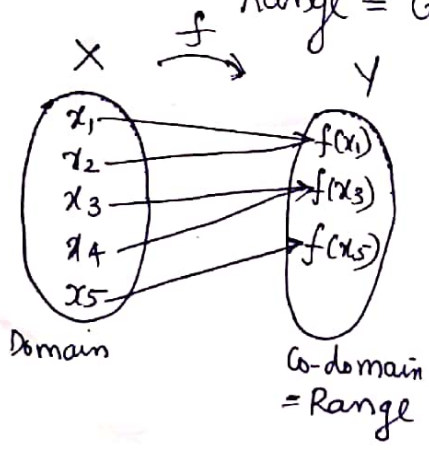 Range =
f
X
Y
x1
x2
x3
x4
x5
f(x1)
f(x3)
f(x5)
Domain
Co-domain
= Range